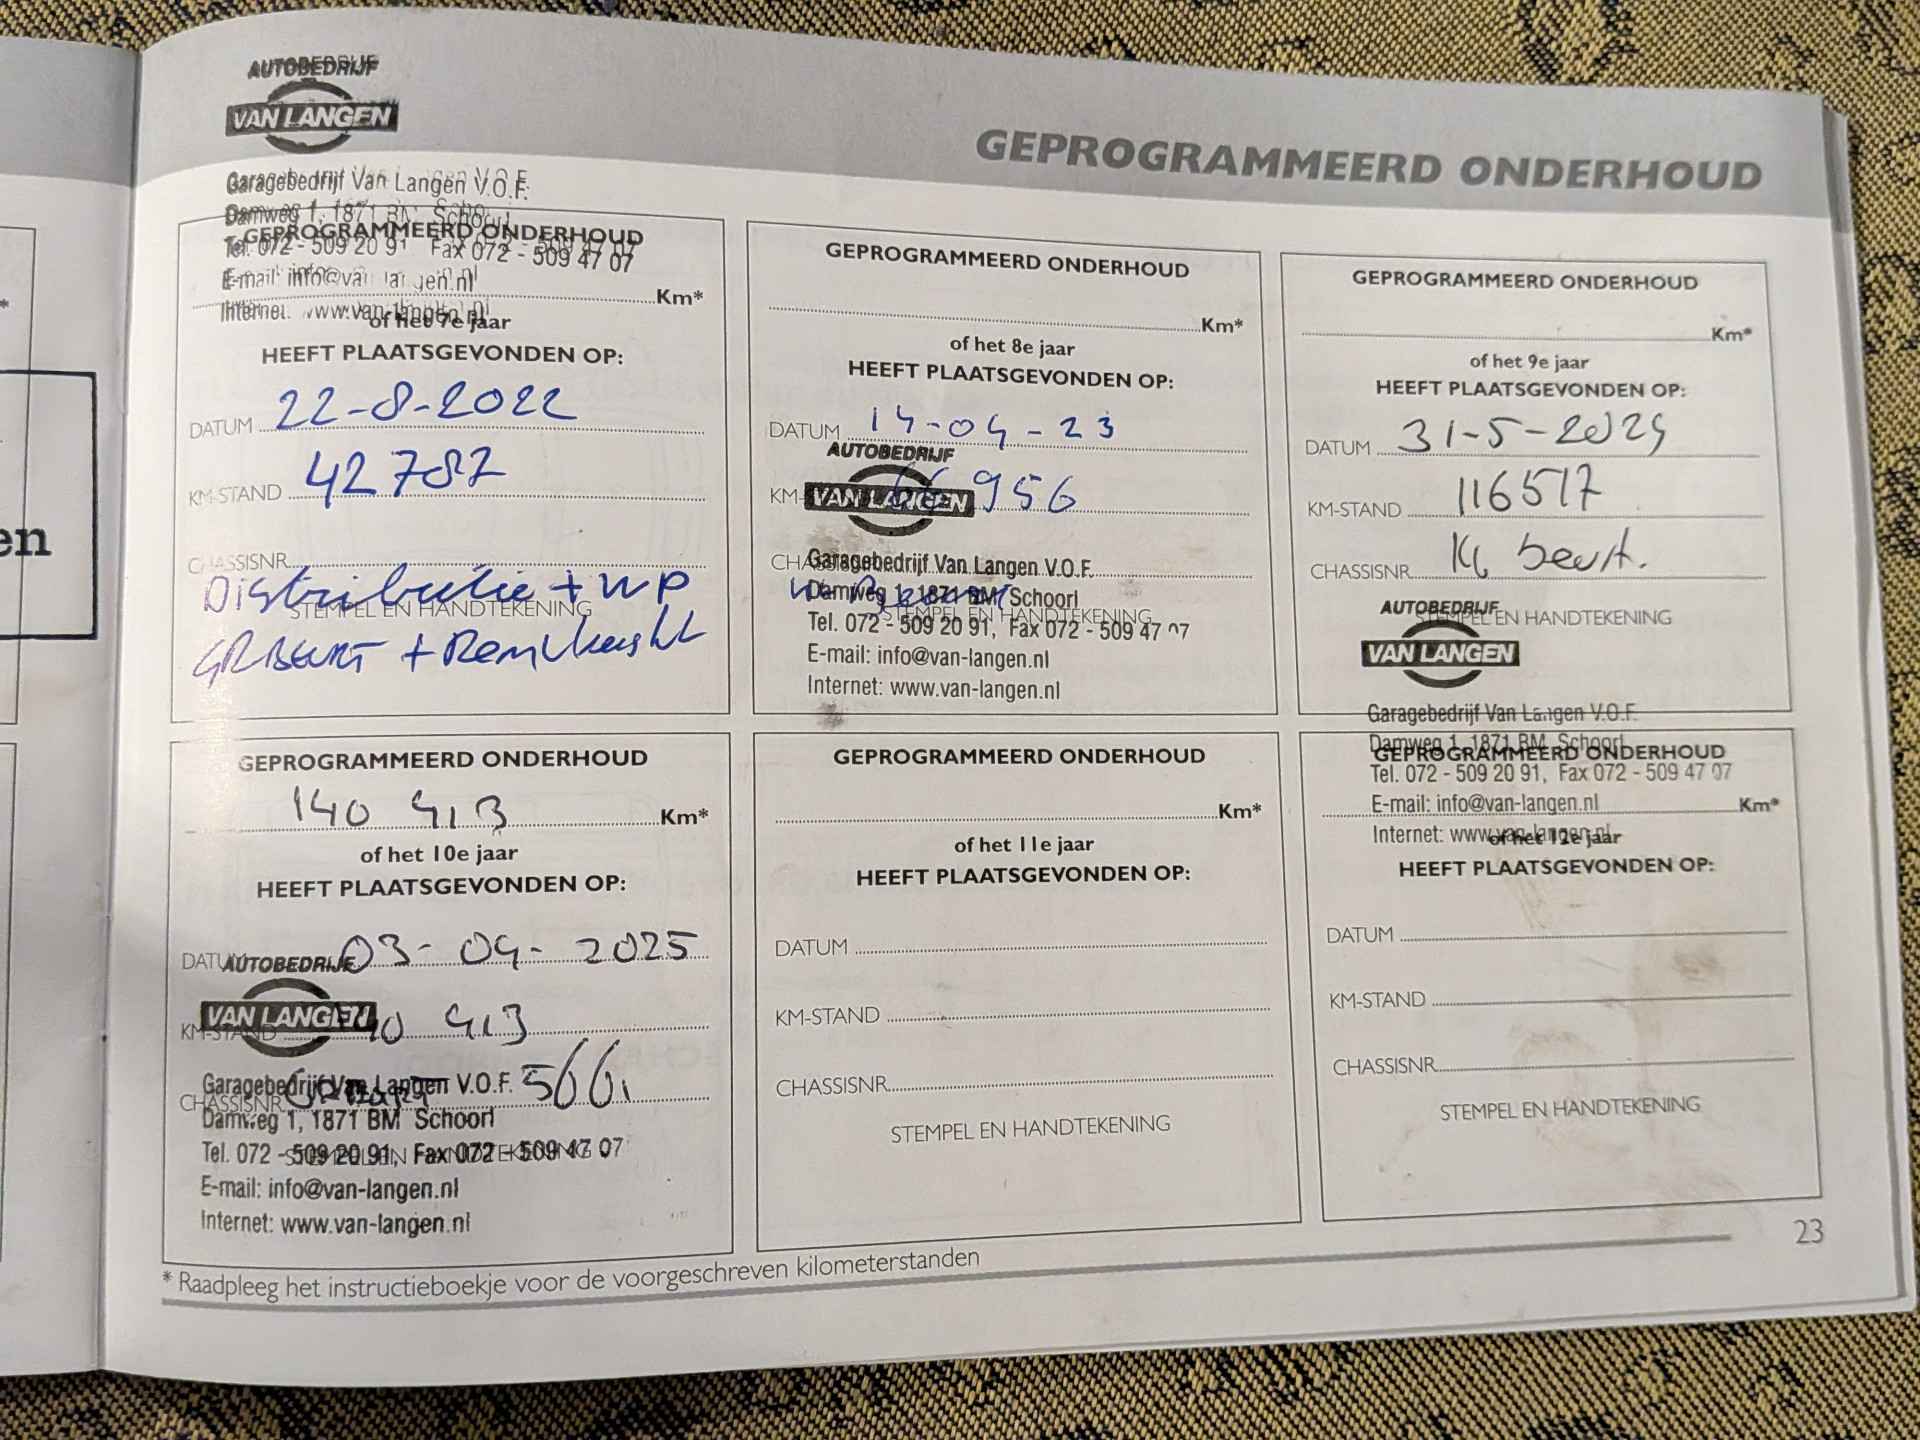 GEPROGRAMMEERD ONDERHOUD
AUTOBEDRIJF
VAN LANGEN
Garagebedrijf Van Langen V.O.F.
Damweg 1, 1871 BM Schoorl
Tel. 072 - 509 20 91 Fax 072 - 509 47 07
E-mail: info@van-langen.nl
Internet: www.van-langen.nl
GEPROGRAMMEERD ONDERHOUD
Km*
of het 7e jaar
HEEFT PLAATSGEVONDEN OP:
DATUM 22-8-2022
KM-STAND 42787
CHASSISNR.
Distributie + WP
STEMPEL EN HANDTEKENING
GRBEURT +
GEPROGRAMMEERD ONDERHOUD
Km*
of het 8e jaar
HEEFT PLAATSGEVONDEN OP:
DATUM 14-04-23
AUTOBEDRIJF
KM- 956
VAN LANGEN
CHASSISNR.
Garagebedrijf Van Langen V.O.F.
Damweg 1, 1871 BM Schoorl
STEMPEL EN HANDTEKENING
Tel. 072 - 509 20 91, Fax 072 - 509 47 07
E-mail: info@van-langen.nl
Internet: www.van-langen.nl
GEPROGRAMMEERD ONDERHOUD
Km*
of het 9e jaar
HEEFT PLAATSGEVONDEN OP:
DATUM 31-5-2024
KM-STAND 116517
CHASSISNR. beurt.
AUTOBEDRIJF
STEMPEL EN HANDTEKENING
VAN LANGEN
Garagebedrijf Van Langen V.O.F.
Damweg 1, 1871 BM Schoorl
Tel. 072 - 509 20 91, Fax 072 - 509 47 07
E-mail: info@van-langen.nl
Internet: www.van-langen.nl
GEPROGRAMMEERD ONDERHOUD
140 413 Km*
of het 10e jaar
HEEFT PLAATSGEVONDEN OP:
DATUM 03-04-2025
AUTOBEDRIJF
VAN LANGEN
KM-STAND 140 413
Garagebedrijf Van Langen V.O.F.
CHASSISNR.
Damweg 1, 1871 BM Schoorl
Tel. 072 - 509 20 91, Fax 072 - 509 47 07
STEMPEL EN HANDTEKENING
E-mail: info@van-langen.nl
Internet: www.van-langen.nl
GEPROGRAMMEERD ONDERHOUD
Km*
of het 11e jaar
HEEFT PLAATSGEVONDEN OP:
DATUM
KM-STAND
CHASSISNR.
STEMPEL EN HANDTEKENING
GEPROGRAMMEERD ONDERHOUD
Km*
of het 12e jaar
HEEFT PLAATSGEVONDEN OP:
DATUM
KM-STAND
CHASSISNR.
STEMPEL EN HANDTEKENING
* Raadpleeg het instructieboekje voor de voorgeschreven kilometerstanden
23
en